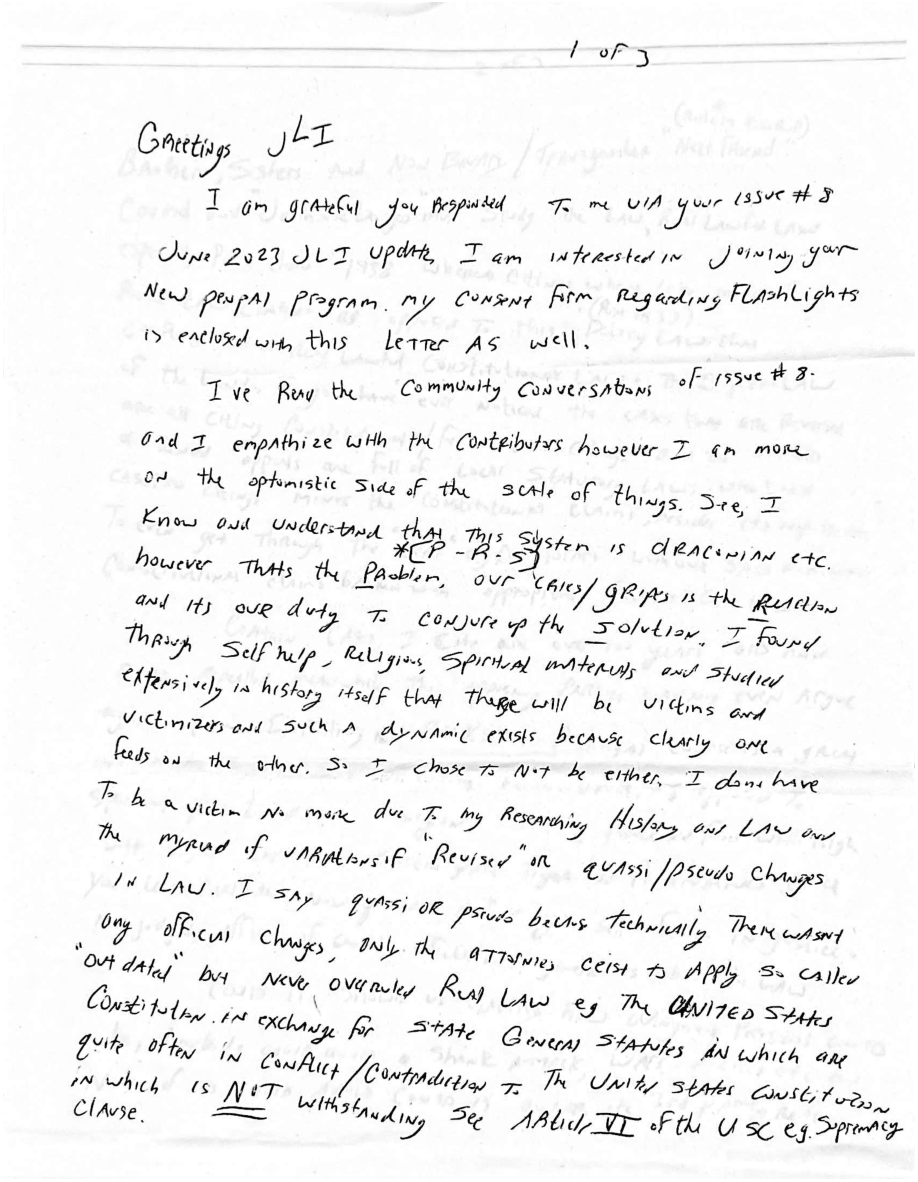 1 OF 3
Greetings JLI
I am grateful you Responded To me via your issue # 8
June 2023 JLI update, I am interested in joining your
New penpal program. my consent form Regarding Flashlights
is enclosed with this Letter As well.
I ve Read the Community Conversations of issue # 8.
and I empathize with the contributors however I am more
on the optomistic side of the scale of things. See, I
Know and understand that This System is dRAconian etc.
*[P - R - S]
however Thats the Problem, our cries/gripes is the Reaction
and its our duty To conjure up the Solution. I found
Through Self help, Religious, Spiritual materials and studied
extensively in history itself that there will be victims and
victimizers and such A dynamic exists because clearly one
feeds on the other. So I chose to Not be either. I dont have
To be a victim No more due To my Researching History and LAW and
the myriad of variations if "Revised" OR quassi/pseudo changes
in LAW. I say quassi OR pseudo becaus technically There wasnt
any official changes, only the attornies ceist to Apply so called
"out dated" but never overruled Real LAW eg The UNITED STATES
Constitution. in exchange for state General Statutes in which are
quite often in conflict/contradiction To The United States constitution
in which is NOT withstanding See ARticle VI of the U SC e.g. Supremacy
Clause.